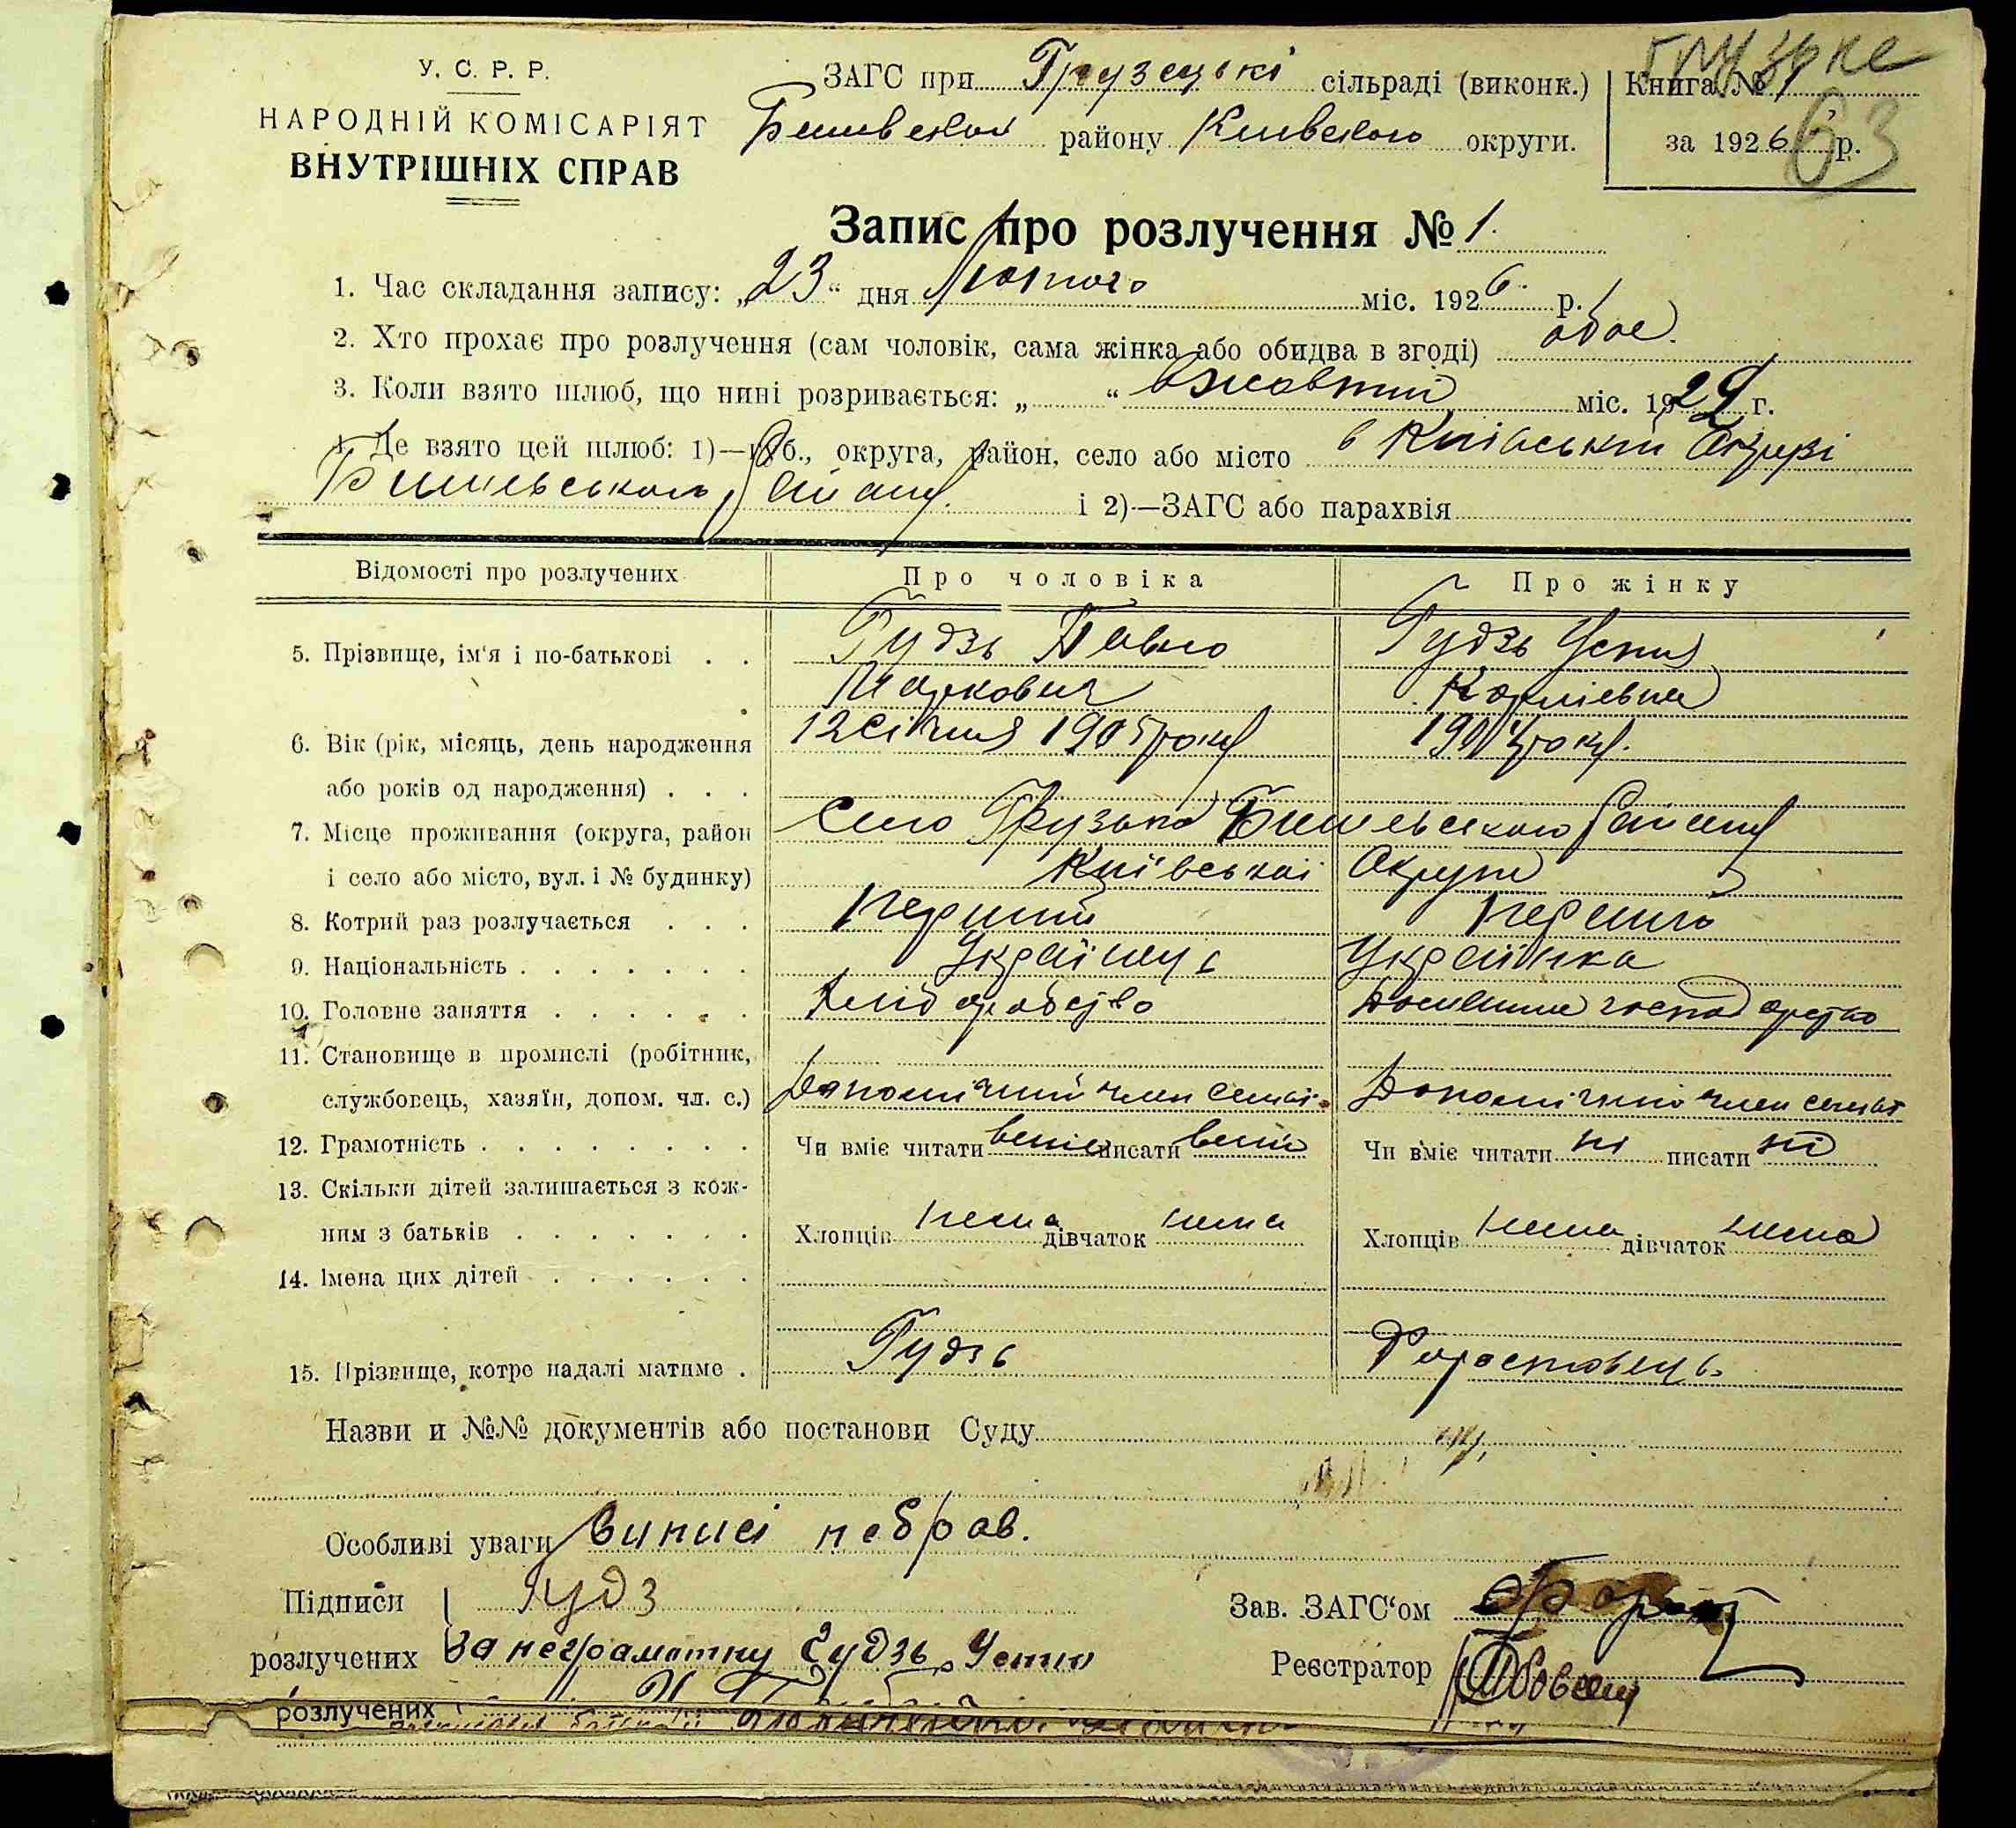 Грузьке
63
У. С. Р. Р.
НАРОДНІЙ КОМІСАРІЯТ
ВНУТРІШНІХ СПРАВ
ЗАГС при Грузецькі сільраді (виконк.)
району Киевского округи.
Книга № 1
за 1926 р.
Запис про розлучення № 1.
1. Час складання запису: „23“ дня Лютого міс. 1926 р.
2. Хто прохає про розлучення (сам чоловік, сама жінка або обидва в згоді) обое.
3. Коли взято шлюб, що нині розривається: „ “ міс. 192 г.
4. Де взято цей шлюб: 1)—губ., округа, район, село або місто в Київській Окрузі
Бишевського Району. і 2)—ЗАГС або парахвія
Відомості про розлучених Про чоловіка Про жінку
5. Прізвище, ім'я і по-батькові . . Гудзь Павло Гудзь Устия
Маркович
6. Вік (рік, місяць, день народження 12 Січня 1905 року 1904 року.
або років од народження) . . .
7. Місце проживання (округа, район Село Грузька Бишевського Району
і село або місто, вул. і № будинку) Київської Округи
8. Котрий раз розлучається . . . Перший Перший
9. Національність . . . . . . . Українець Українка
10. Головне заняття . . . . . . Хліборобство Домашне господарство
11. Становище в промислі (робітник,
службовець, хазяїн, допом. чл. с.) Допомічний член семьї. Допомічний член семьї
12. Грамотність . . . . . . . . Чи вміє читати вміє писати вміє Чи вміє читати ні писати ні
13. Скільки дітей залишається з кож-
ним з батьків . . . . . . . Хлопців нема дівчаток нема Хлопців нема дівчаток нема
14. Імена цих дітей . . . . . .
15. Прізвище, котре надалі матиме . Гудзь
Назви и №№ документів або постанови Суду
Особливі уваги Виписі небрав.
Підписи Гудз Зав. ЗАГС'ом
розлучених За неграмотну Гудзь Устию Реєстратор
розлучених